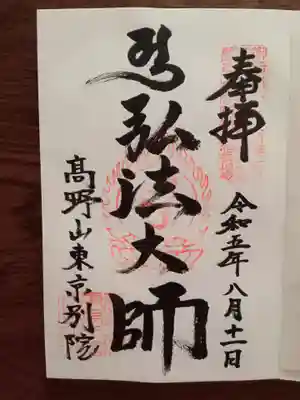 奉拝
令和五年八月十一日
弘法大師
髙野山東京別院